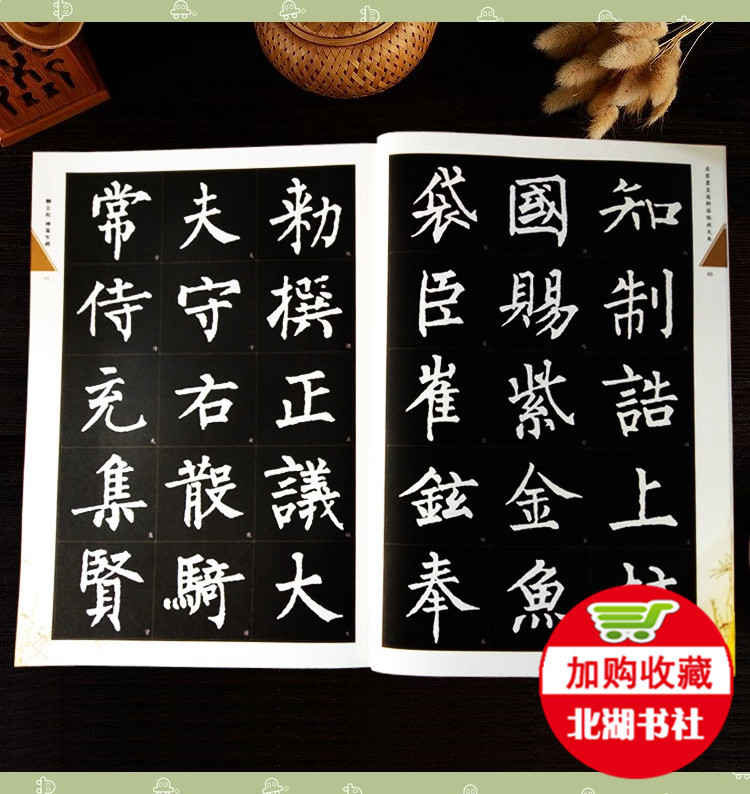 知制誥上
國賜紫金魚
袋臣崔鉉奉
勑撰正議大
夫守右散騎
常侍充集賢
加购收藏
北湖书社